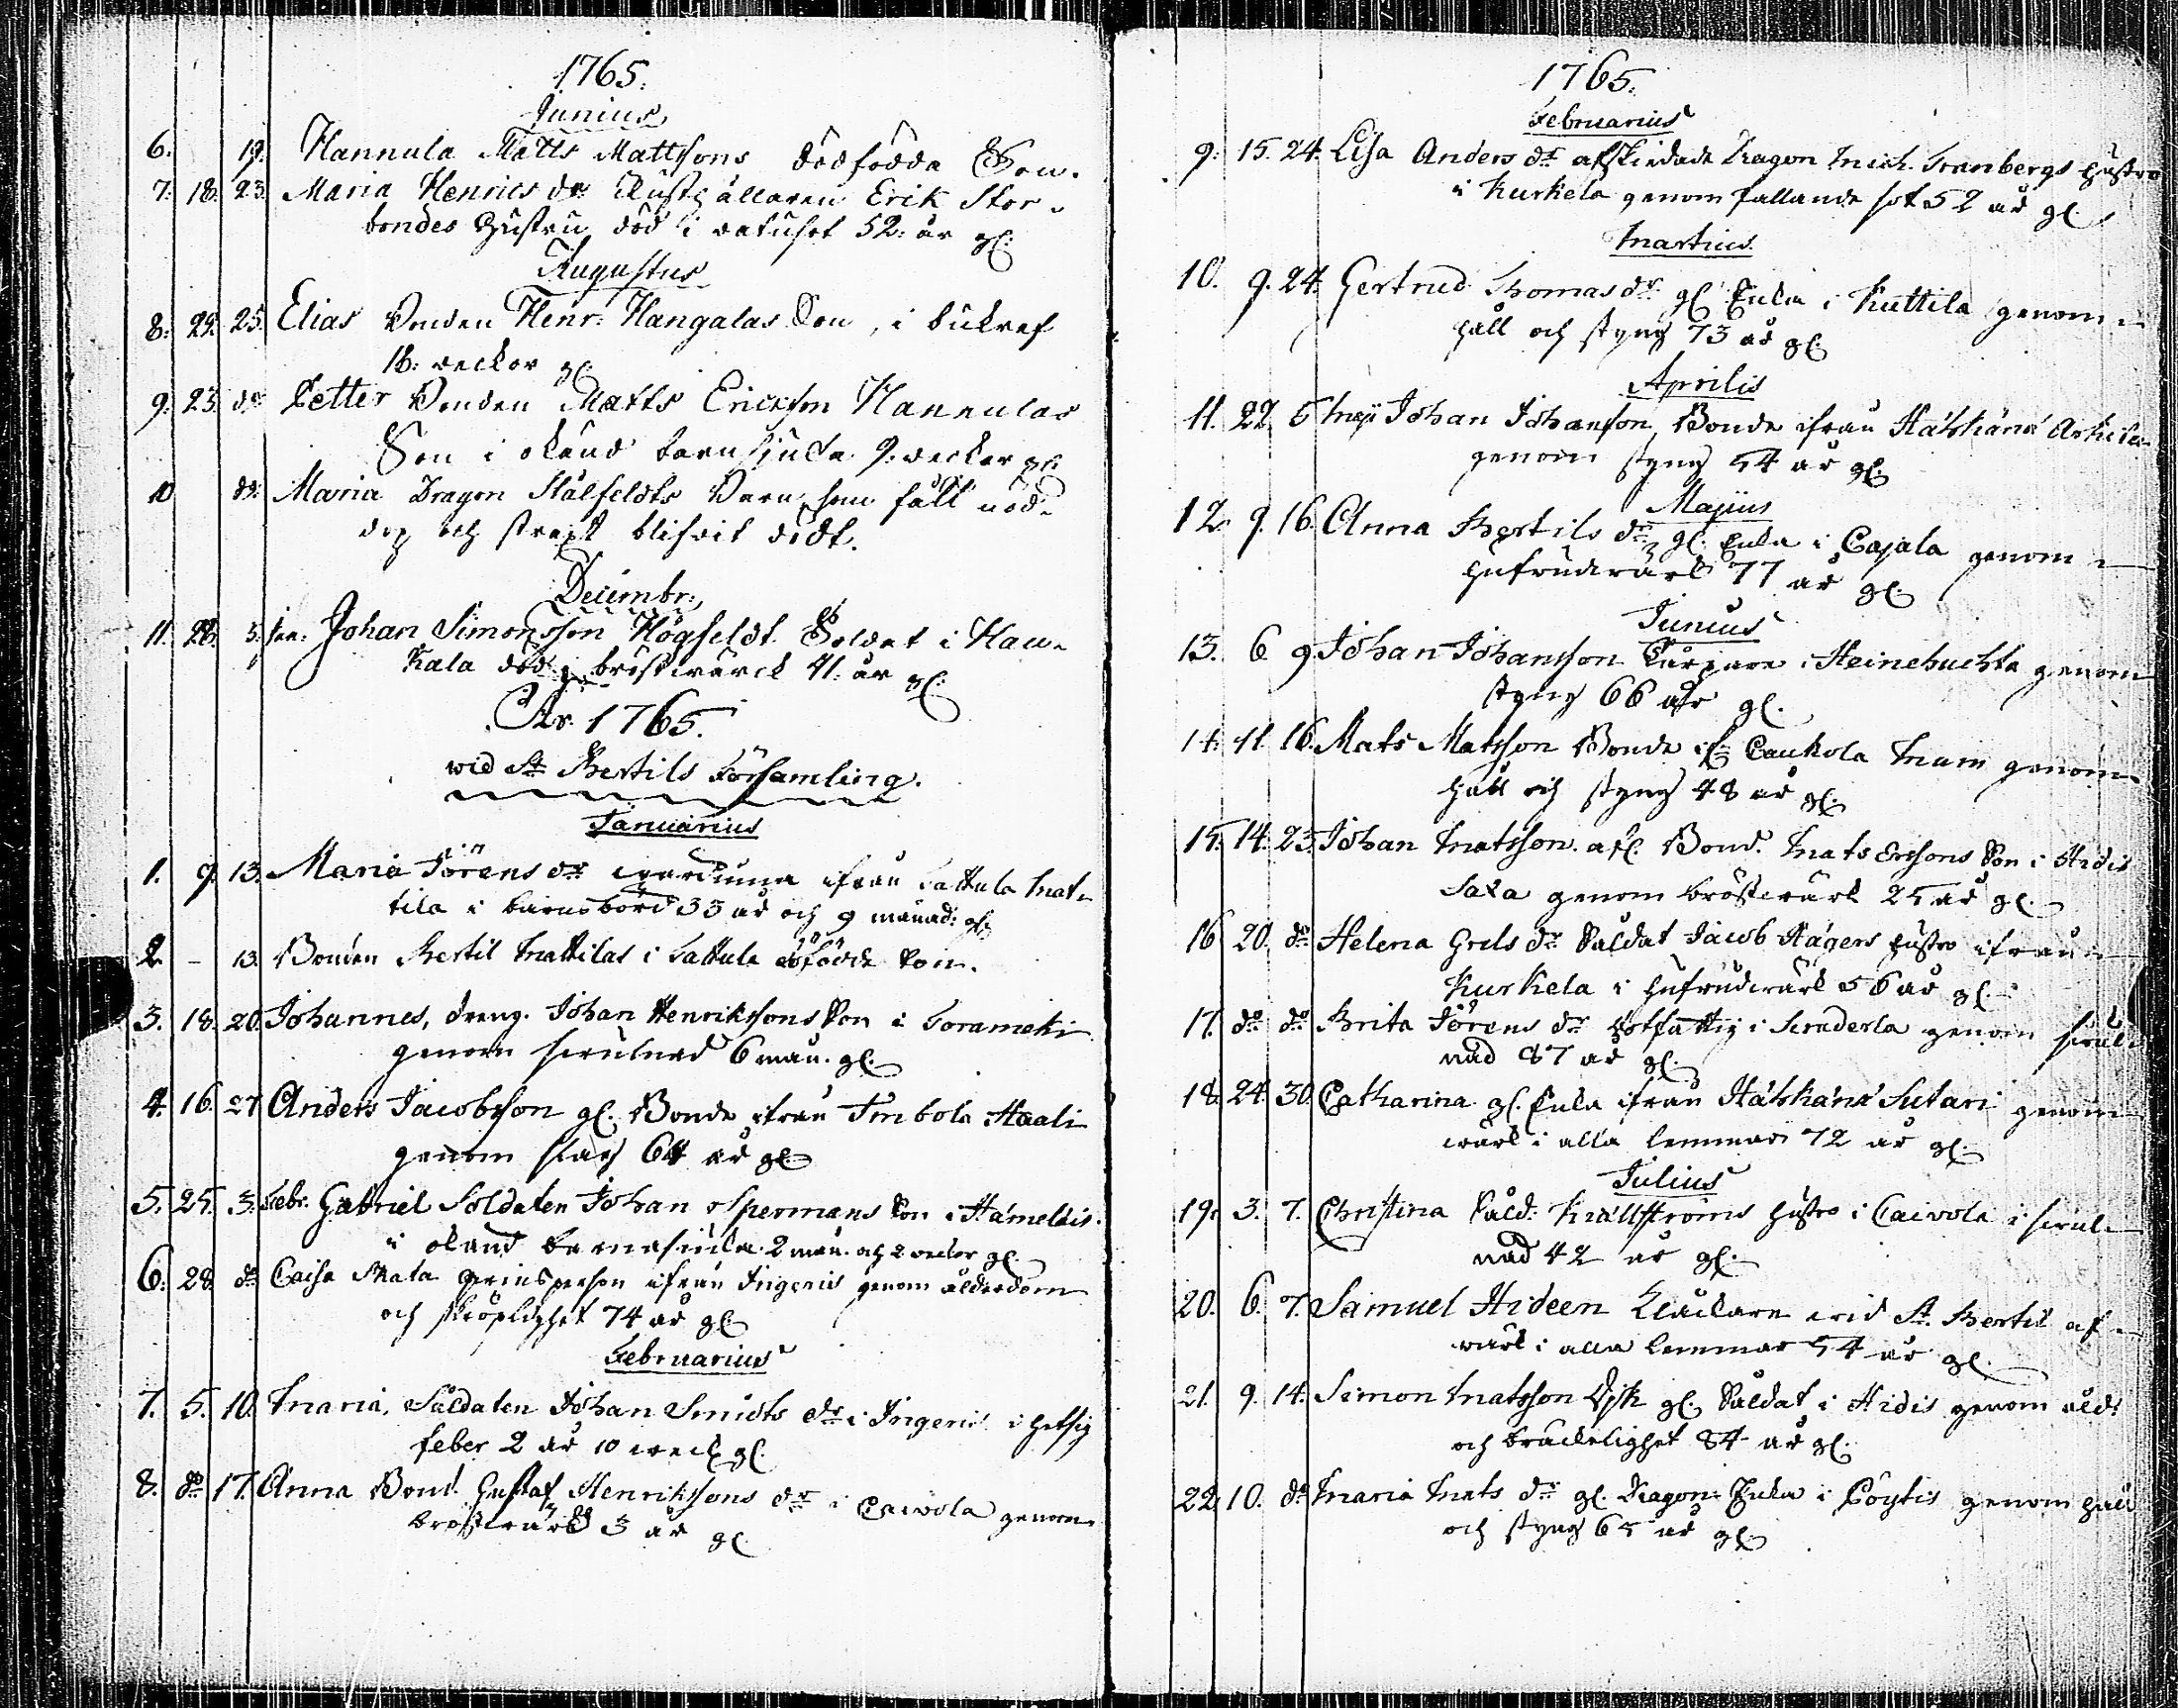 1765.
Junius
6. 19. Hannula Matts Mattssons dödfödda Son.
7. 18. 23. Maria Henrics dr Rusthållaren Erik Stor-
bondes Hustru död i 52. år gl.
Augustus
8. 22. 25. Elias Bonden Henr. Hangalas Son, i bukref
16. veckor gl.
9. 23. do Petter Bonden Matts Ericsson Hannulas
Son i okänd barnsjuka 9. veckor gl.
10 do. Maria Dragon Stålfeldts Barn, som fått nöd-
dop och straxt blifvit dödt.
Decembr.
11. 28. 5. Jan. Johan Simonsson Högfeldt Soldat i Hau-
kala död i bröstvärck 41. år gl.
Ao. 1765.
wid St Bertils Församling.
Januarius
1. 9. 13. Maria Jörens dr ifrån Sattula Mat-
tila i barnsbörd 33 år och 9 månad. gl.
2. – 13. Bonden Bertil Mattilas i Sattula dödfödde Son.
3. 18. 20. Johannes, dreng. Johan Henrikssons Son i Sorameki
genom swulnad 6 mån. gl.
4. 16. 27 Anders Jacobsson gl. Bonde ifrån Immbola Haali
genom slag 64 år gl.
5. 25. 3. Febr. Gabriel Soldaten Johan Spermans Son i Hämeldis.
i okänd barnasiuka 2 mån. och 2 veckor gl.
6. 28. do Caisa Skata ifrån Ingeris genom ålderdom
och skröplighet 74 år gl.
Februarius
7. 5. 10. Maria, Såldaten Johan Smidts dr i Ingeris i hetsig
feber 2 år 10 weck. gl.
8. do 17. Anna Bond. Gustaf Henrikssons dr i Caivola genom
bröstwärk 3 år gl.
1765.
Februarius
9. 15. 24. Lisa Anders dr afskiedade Dragon Mich. Tranbergs hustro
i Kurkela genom fallande sot 52 år gl.
Martius
10. 9. 24. Gertrud Thomas dr gl. Enka i Kuttila genom
håll och styng 73 år gl.
Aprilis
11. 22. 5 Maji Johan Johansson, Bonde ifrån Hätskänä Arkila
genom styng 54 år gl.
Majus
12. 9. 16. Anna Bertils dr gl. Enka i Cajala genom
hufvudvärk 77 år gl.
Junius
13. 6 9. Johan Johansson i Heinehuchta genom
styng 66 år gl.
14. 11. 16. Mats Matsson Bonde ifr. Caukola genom
håll och styng 48 år gl.
15. 14. 23. Johan Matsson. afl. Bond. Mats Ersons Son i Hidis
Sala genom bröstwärk 25 år gl.
16 20. do Helena Grels dr Såldat Jacob Hägers hustro ifrån
Kurkela i hufvudwärk 56 år gl.
17. do do Brita Jörens dr i genom swul-
nad 87 år gl.
18. 24. 30. Catharina gl. Enka ifrån Hätskänä Sutari genom
wärk i alla lemmar 72 år gl.
Julius
19. 3. 7. Christina Såld. Källströms hustro i Caivola i swul-
nad 42 år gl.
20. 6. 7. Samuel Hideen Klåckare wid St. Bertil af
wärk i alla lemmar 54 år gl.
21. 9. 14. Simon Matsson gl. Såldat i Hidis genom åld.
och bräckelighet 84 år gl.
22. 10. do Maria Mats dr gl. Dragon Enka i Cöytis genom håll
och styng 65 år gl.